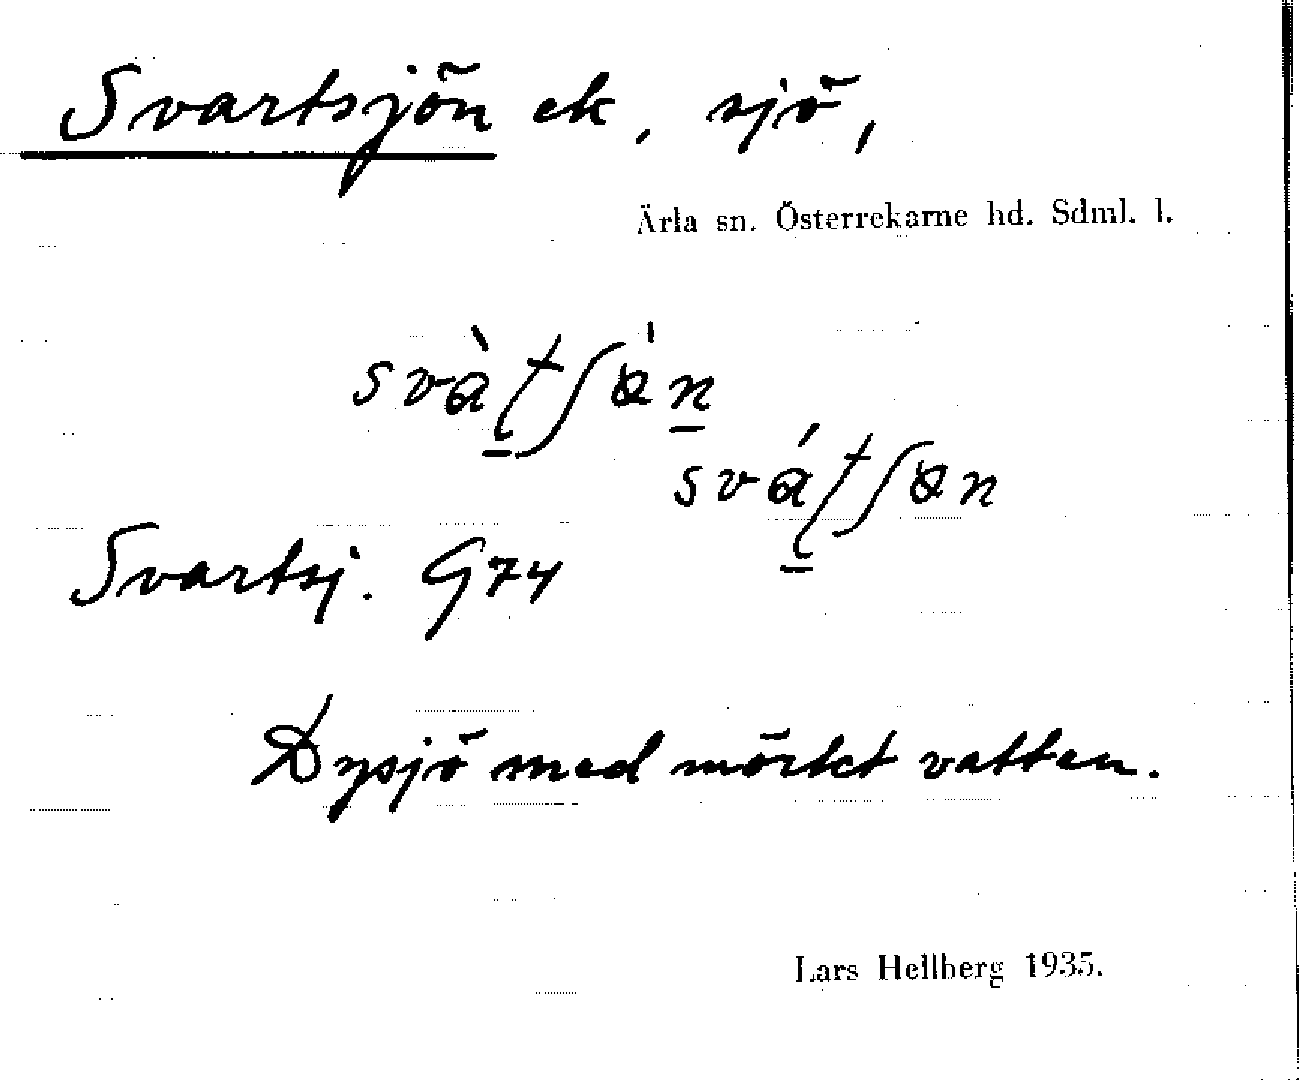 Svartsjön ek, sjö,
Ärla sn. Österrekarne hd. Sdml. l.
Svartsj. G74
Dysjö med mörkt vatten.
Lars Hellberg 1935.